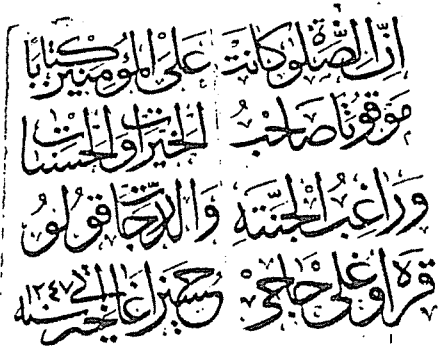 إن الصلوة كانت على المؤمنين كتابا
موقوتا صاحب الخيرات والحسنات
وراغب الجنته والدرجات قولو
قره اوغلى حاجى حسين اغا الخير سنه ١٢٤٧